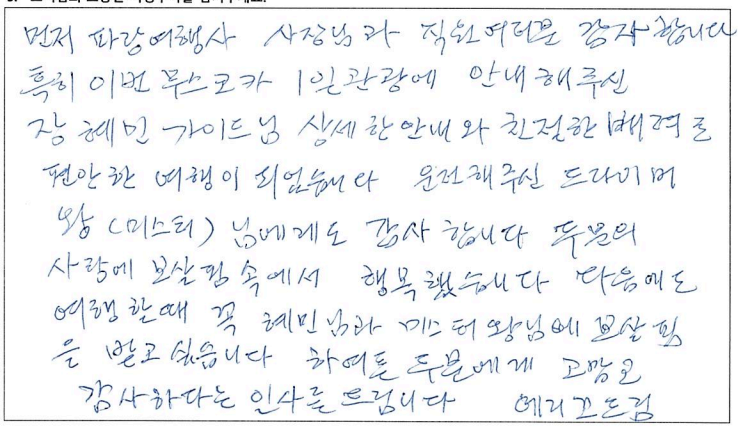 먼저 파랑여행사 사장님과 직원여러분 감사합니다
특히 이번 무스코카 1일관광에 안내해주신
장혜민 가이드님 상세한안내와 친절한 배려로
편안한 여행이 되었습니다 운전해주신 드라이버
왕(미스터)님에게도 감사합니다 두분의
사랑에 보살핌속에서 행복했습니다 다음에도
여행할때 꼭 혜민님과 미스터왕님에 보살핌
을 받고싶습니다 하여튼 두분에게 고맙고
감사하다는 인사를 드립니다